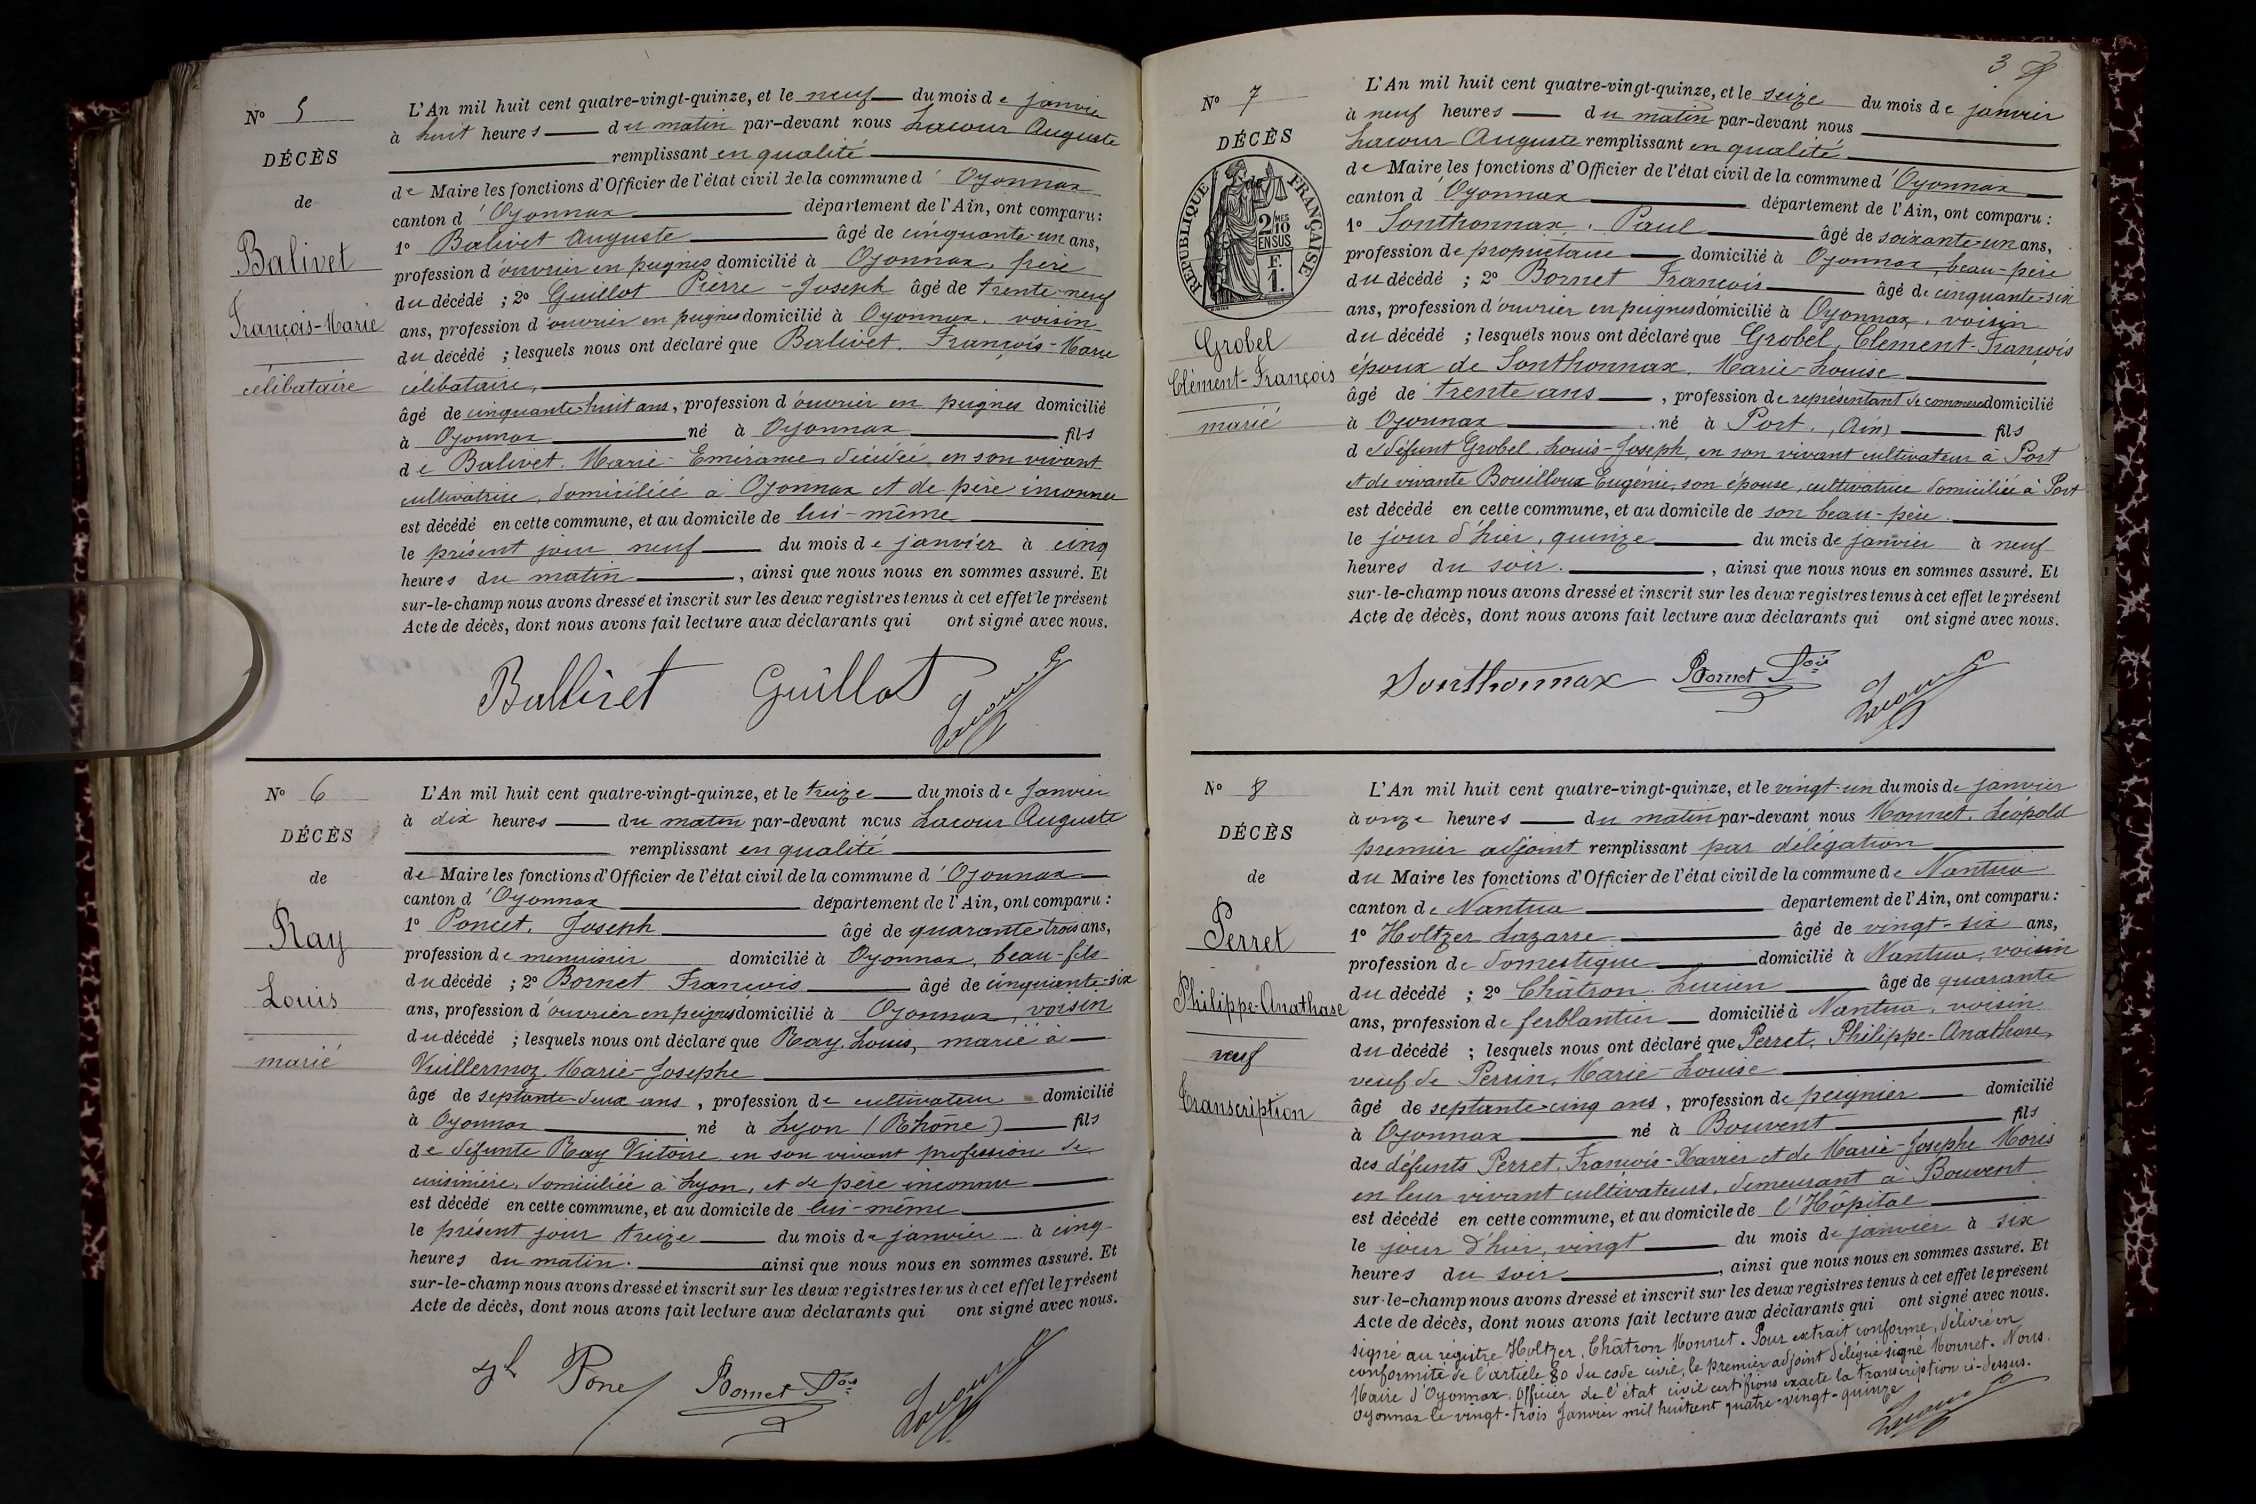 Nº 5
DÉCÈS
de
Balivet
François-Marie
célibataire
L'An mil huit cent quatre-vingt-quinze, et le neuf du mois de janvier
à huit heures du matin par-devant nous Lacour Auguste
remplissant en qualité
de Maire les fonctions d'Officier de l'état civil de la commune d'Oyonnax
canton d'Oyonnax département de l'Ain, ont comparu :
1º Balivet Auguste âgé de cinquante-un ans,
profession d'ouvrier en peignes domicilié à Oyonnax, frère
du décédé ; 2º Guillot Pierre-Joseph âgé de trente-neuf
ans, profession d'ouvrier en peignes domicilié à Oyonnax, voisin
du décédé ; lesquels nous ont déclaré que Balivet, François-Marie
célibataire,
âgé de cinquante-huit ans, profession d'ouvrier en peignes domicilié
à Oyonnax né à Oyonnax fils
de Balivet, Marie-Emérance, décédée, en son vivant
cultivatrice, domiciliée à Oyonnax et de père inconnu
est décédé en cette commune, et au domicile de lui-même
le présent jour neuf du mois de janvier à cinq
heures du matin, ainsi que nous nous en sommes assuré. Et
sur-le-champ nous avons dressé et inscrit sur les deux registres tenus à cet effet le présent
Acte de décès, dont nous avons fait lecture aux déclarants qui ont signé avec nous.
Balliret Guillot Lacour
Nº 6
DÉCÈS
de
Ray
Louis
marié
L'An mil huit cent quatre-vingt-quinze, et le treize du mois de janvier
à dix heures du matin par-devant nous Lacour Auguste
remplissant en qualité
de Maire les fonctions d'Officier de l'état civil de la commune d'Oyonnax
canton d'Oyonnax département de l'Ain, ont comparu :
1º Poncet, Joseph âgé de quarante-trois ans,
profession de menuisier domicilié à Oyonnax, beau-fils
du décédé ; 2º Bornet François âgé de cinquante-six
ans, profession d'ouvrier en peignes domicilié à Oyonnax, voisin
du décédé ; lesquels nous ont déclaré que Ray, Louis, marié à
Vuillermoz, Marie-Josephe
âgé de septante-deux ans, profession de cultivateur domicilié
à Oyonnax né à Lyon (Rhône) fils
de défunte Ray Victoire, en son vivant profession de
cuisinière, domiciliée à Lyon, et de père inconnu
est décédé en cette commune, et au domicile de lui-même
le présent jour treize du mois de janvier à cinq
heures du matin. ainsi que nous nous en sommes assuré. Et
sur-le-champ nous avons dressé et inscrit sur les deux registres tenus à cet effet le présent
Acte de décès, dont nous avons fait lecture aux déclarants qui ont signé avec nous.
Bornet Fois Lacour
3
Nº 7
DÉCÈS
RÉPUBLIQUE FRANÇAISE
2/10 MES
EN SUS
F.
1.
Grobel
Clément-François
marié
L'An mil huit cent quatre-vingt-quinze, et le seize du mois de janvier
à neuf heures du matin par-devant nous
Lacour Auguste remplissant en qualité
de Maire les fonctions d'Officier de l'état civil de la commune d'Oyonnax
canton d'Oyonnax département de l'Ain, ont comparu :
1º Sonthonnax, Paul âgé de soixante-un ans,
profession de propriétaire domicilié à Oyonnax, beau-père
du décédé ; 2º Bornet François âgé de cinquante-six
ans, profession d'ouvrier en peignes domicilié à Oyonnax, voisin
du décédé ; lesquels nous ont déclaré que Grobel, Clément-François
époux de Sonthonnax, Marie-Louise
âgé de trente ans, profession de représentant de commerce domicilié
à Oyonnax né à Port, (Ain) fils
de défunt Grobel, Louis-Joseph, en son vivant cultivateur à Port
et de vivante Bouilloux Eugénie, son épouse, cultivatrice domiciliée à Port
est décédé en cette commune, et au domicile de son beau-père.
le jour d'hier, quinze du mois de janvier à neuf
heures du soir. , ainsi que nous nous en sommes assuré. Et
sur-le-champ nous avons dressé et inscrit sur les deux registres tenus à cet effet le présent
Acte de décès, dont nous avons fait lecture aux déclarants qui ont signé avec nous.
Sonthonnax Bornet Fois Lacour
Nº 8
DÉCÈS
de
Perret
Philippe-Anathase
veuf
Transcription
L'An mil huit cent quatre-vingt-quinze, et le vingt-un du mois de janvier
à onze heures du matin par-devant nous Monnet, Léopold
premier adjoint remplissant par délégation
du Maire les fonctions d'Officier de l'état civil de la commune de Nantua
canton de Nantua département de l'Ain, ont comparu :
1º Holtzer Lazarre âgé de vingt-six ans,
profession de domestique domicilié à Nantua, voisin
du décédé ; 2º Châtron Lucien âgé de quarante
ans, profession de ferblantier domicilié à Nantua, voisin
du décédé ; lesquels nous ont déclaré que Perret, Philippe-Anathase,
veuf de Perrin, Marie-Louise
âgé de septante-cinq ans, profession de peignier domicilié
à Oyonnax né à Bouvent fils
des défunts Perret, François-Xavier et de Marie-Josephe Morel
en leur vivant cultivateurs, demeurant à Bouvent
est décédé en cette commune, et au domicile de l'Hôpital
le jour d'hier, vingt du mois de janvier à six
heures du soir, ainsi que nous nous en sommes assuré. Et
sur-le-champ nous avons dressé et inscrit sur les deux registres tenus à cet effet le présent
Acte de décès, dont nous avons fait lecture aux déclarants qui ont signé avec nous.
signé au registre Holtzer, Châtron Monnet. Pour extrait conforme, délivré en
conformité de l'article 80 du code civil, le premier adjoint délégué signé Monnet. Nous
Maire d'Oyonnax, Officier de l'état civil certifions exacte la transcription ci-dessus.
Oyonnax le vingt-trois Janvier mil huit cent quatre-vingt-quinze
Lacour